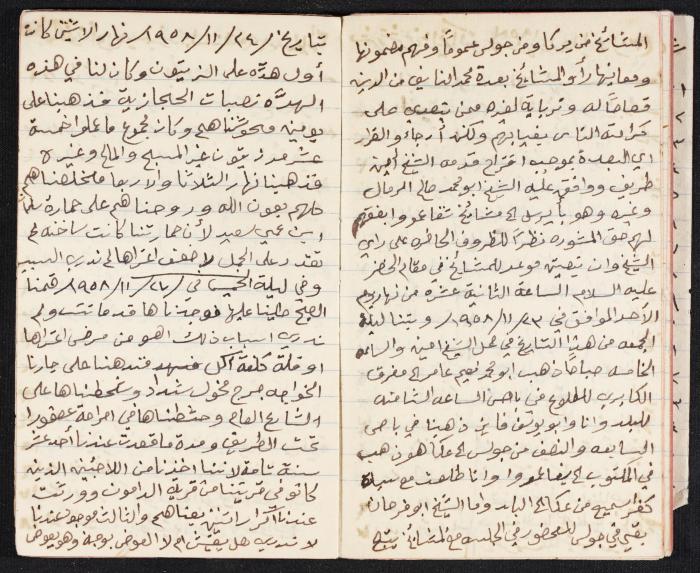 المشائخ من يركا ومن جولس عموماً وفهم مضمونها
ومعاينها رأو المشائخ بعدة محمد النايف من الدين
قصاصاً له وترباية لغيره ممن يتعدى على
كرامة الناس بغيابهم ولكنه أرجاءو القرار
اي البعدة بموجب اقتراح قدمه الشيخ أمين
طريف ووافق عليه الشيخ ابو محمد صالح الرمال
وغيره وهو بأن يرسل لمشائخ شفاعمرو
لهم حق المشوره نظراً للظروف الحاضره على رأي
الشيخ وان تعيين موعد للمشائخ في مقام الخضر
عليه السلام الساعة الثانية عشرة من نهار يوم
الأحد الموافق في ٢٣/١١/١٩٥٨ وبتنا ليلة
الجمعه من هذا التاريخ في محل الشيخ امين والساعه
الخامسه صباحاً ذهب ابو محمد نعيم عامر لمفرق
الكابري للطلوع في باص الساعه الثامنه
للبلد وانا وابو يوسف فايز ذهبنا في باص
السابعه والنصف من جولس لعكا هو ذهب
في المكتوب لشفاعمرو وانا طلعت مع سيارة
كفر سميع من عكا للبلد واما الشيخ ابو فرحان
بقي في جولس للحضور في الجلسه مع المشائخ
بتاريخ ٢٤/١١/١٩٥٨ نهار الاثنين كانت
أول هدّه على الزيتون وكان لنا في هذه
الهدّه نصبات الحجازية فذهبنا على
يومين وحوّشناهم وكان مجموع ما عملو خمسة
عشر مد زيتون غير المسبح والمالح وغيره
فذهبنا نهار الثلاثا والاربعا وخلصناهم
كلهم بعون الله وروحناهم على حمارة
ابن عمي سعيد لأن حمارتنا كانت ساخنه لم
تقدر على الحمل لاضعف اعتراها لم ندري السبب
وفي ليلة الخميس في ٢٧/١١/١٩٥٨ قمنا
الصبح طلينا عليها فوجدناها قد ماتت ولم
ندري اسباب ذلك اهو من مرض اعتراها
او قلة كلفة أكل فندهنا على جارنا
الخواجه جريس مخول شداد وشحطناها على
الشارع العام وحشطناها في امراحة عصفورا
تحت الطريق ومدة ما قعدت عندنا أحد عشر
سنة تمامه لاننا اخذنا من اللاجئين الذين
كانو في قريتنا من قرية الدامون وورثت
عندنا كرارتين بعناهم والثالث موجود عندنا
لا ندري هل يعيش ام لا العوض بوجه وهو يعوض